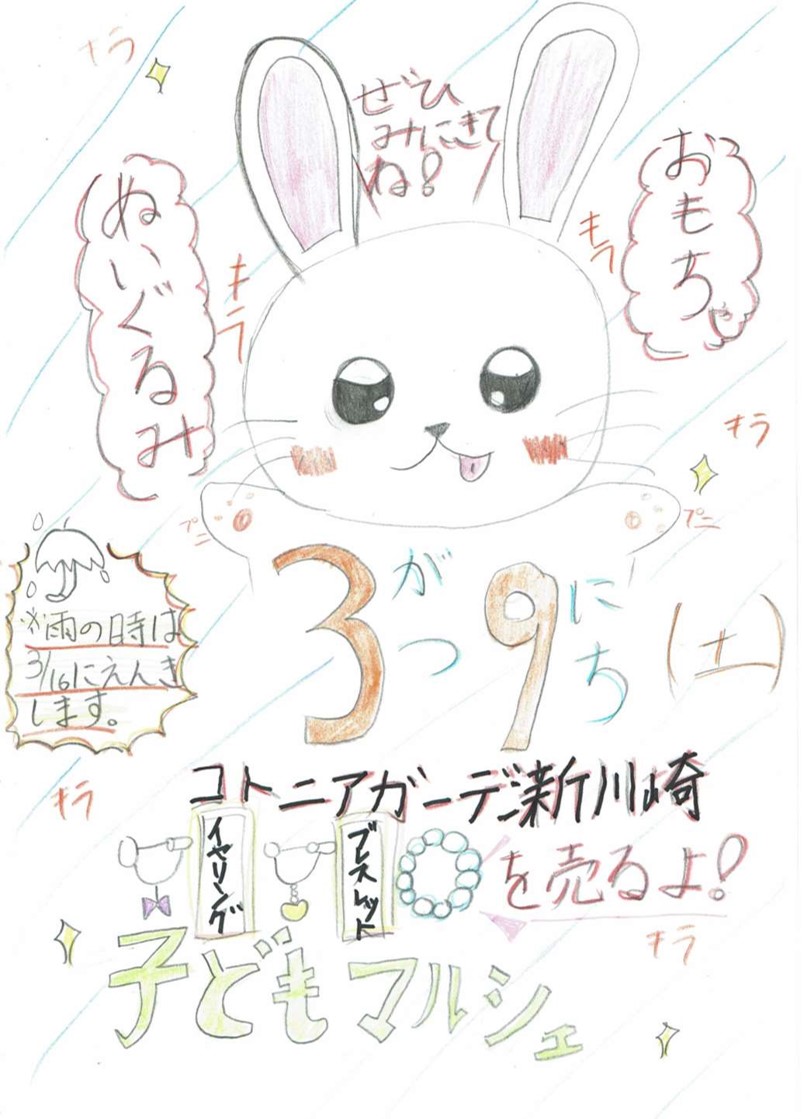 キラ
ぜひ
みにきて
ね!
おもちゃ
ぬいぐるみ
キラ
キラ
キラ
プニ
プニ
3がつ9にち(土)
※雨の時は
3/16にえんき
します。
コトニアガーデン新川崎
キラ
イヤリング
ブレスレット
を売るよ!
キラ
子どもマルシェ